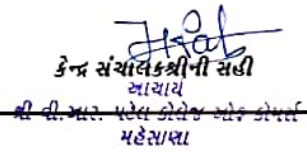 કેન્દ્ર સંચાલકશ્રીની સહી
આચાર્ય
શ્રી વી.આર. પટેલ કોલેજ ઓફ કોમર્સ
મહેસાણા